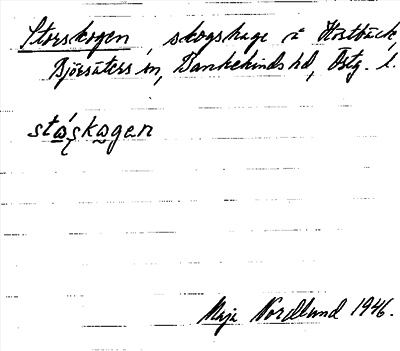 Storskogen, skogshage å Hostbäck,
Björsäters sn, Bankekinds hd, Östg. l.
stø̀skogen
Maja Nordlund 1946.